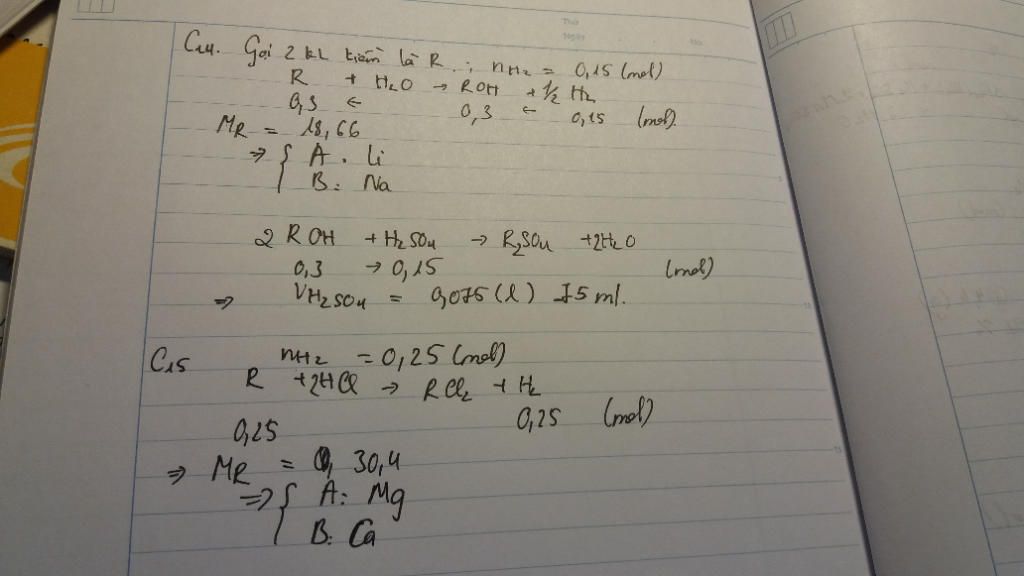 Thứ
Ngày
C14. Gọi 2 kL kiềm là R. ; nH2 = 0,15 (mol)
R + H2O → ROH + 1/2 H2
0,3 ← 0,3 ← 0,15 (mol).
MR = 18,66
⇒ { A. Li
B: Na
2 ROH + H2SO4 → R2SO4 + 2H2O
0,3 → 0,15 (mol)
⇒ VH2SO4 = 0,075 (l) 75 ml.
C15 nH2 = 0,25 (mol)
R + 2HCl → RCl2 + H2
0,25 0,25 (mol)
⇒ MR = 30,4
⇒ { A: Mg
B: Ca